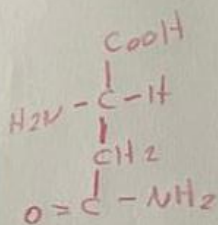 COOH
H2N-C-H
CH2
O=C-NH2